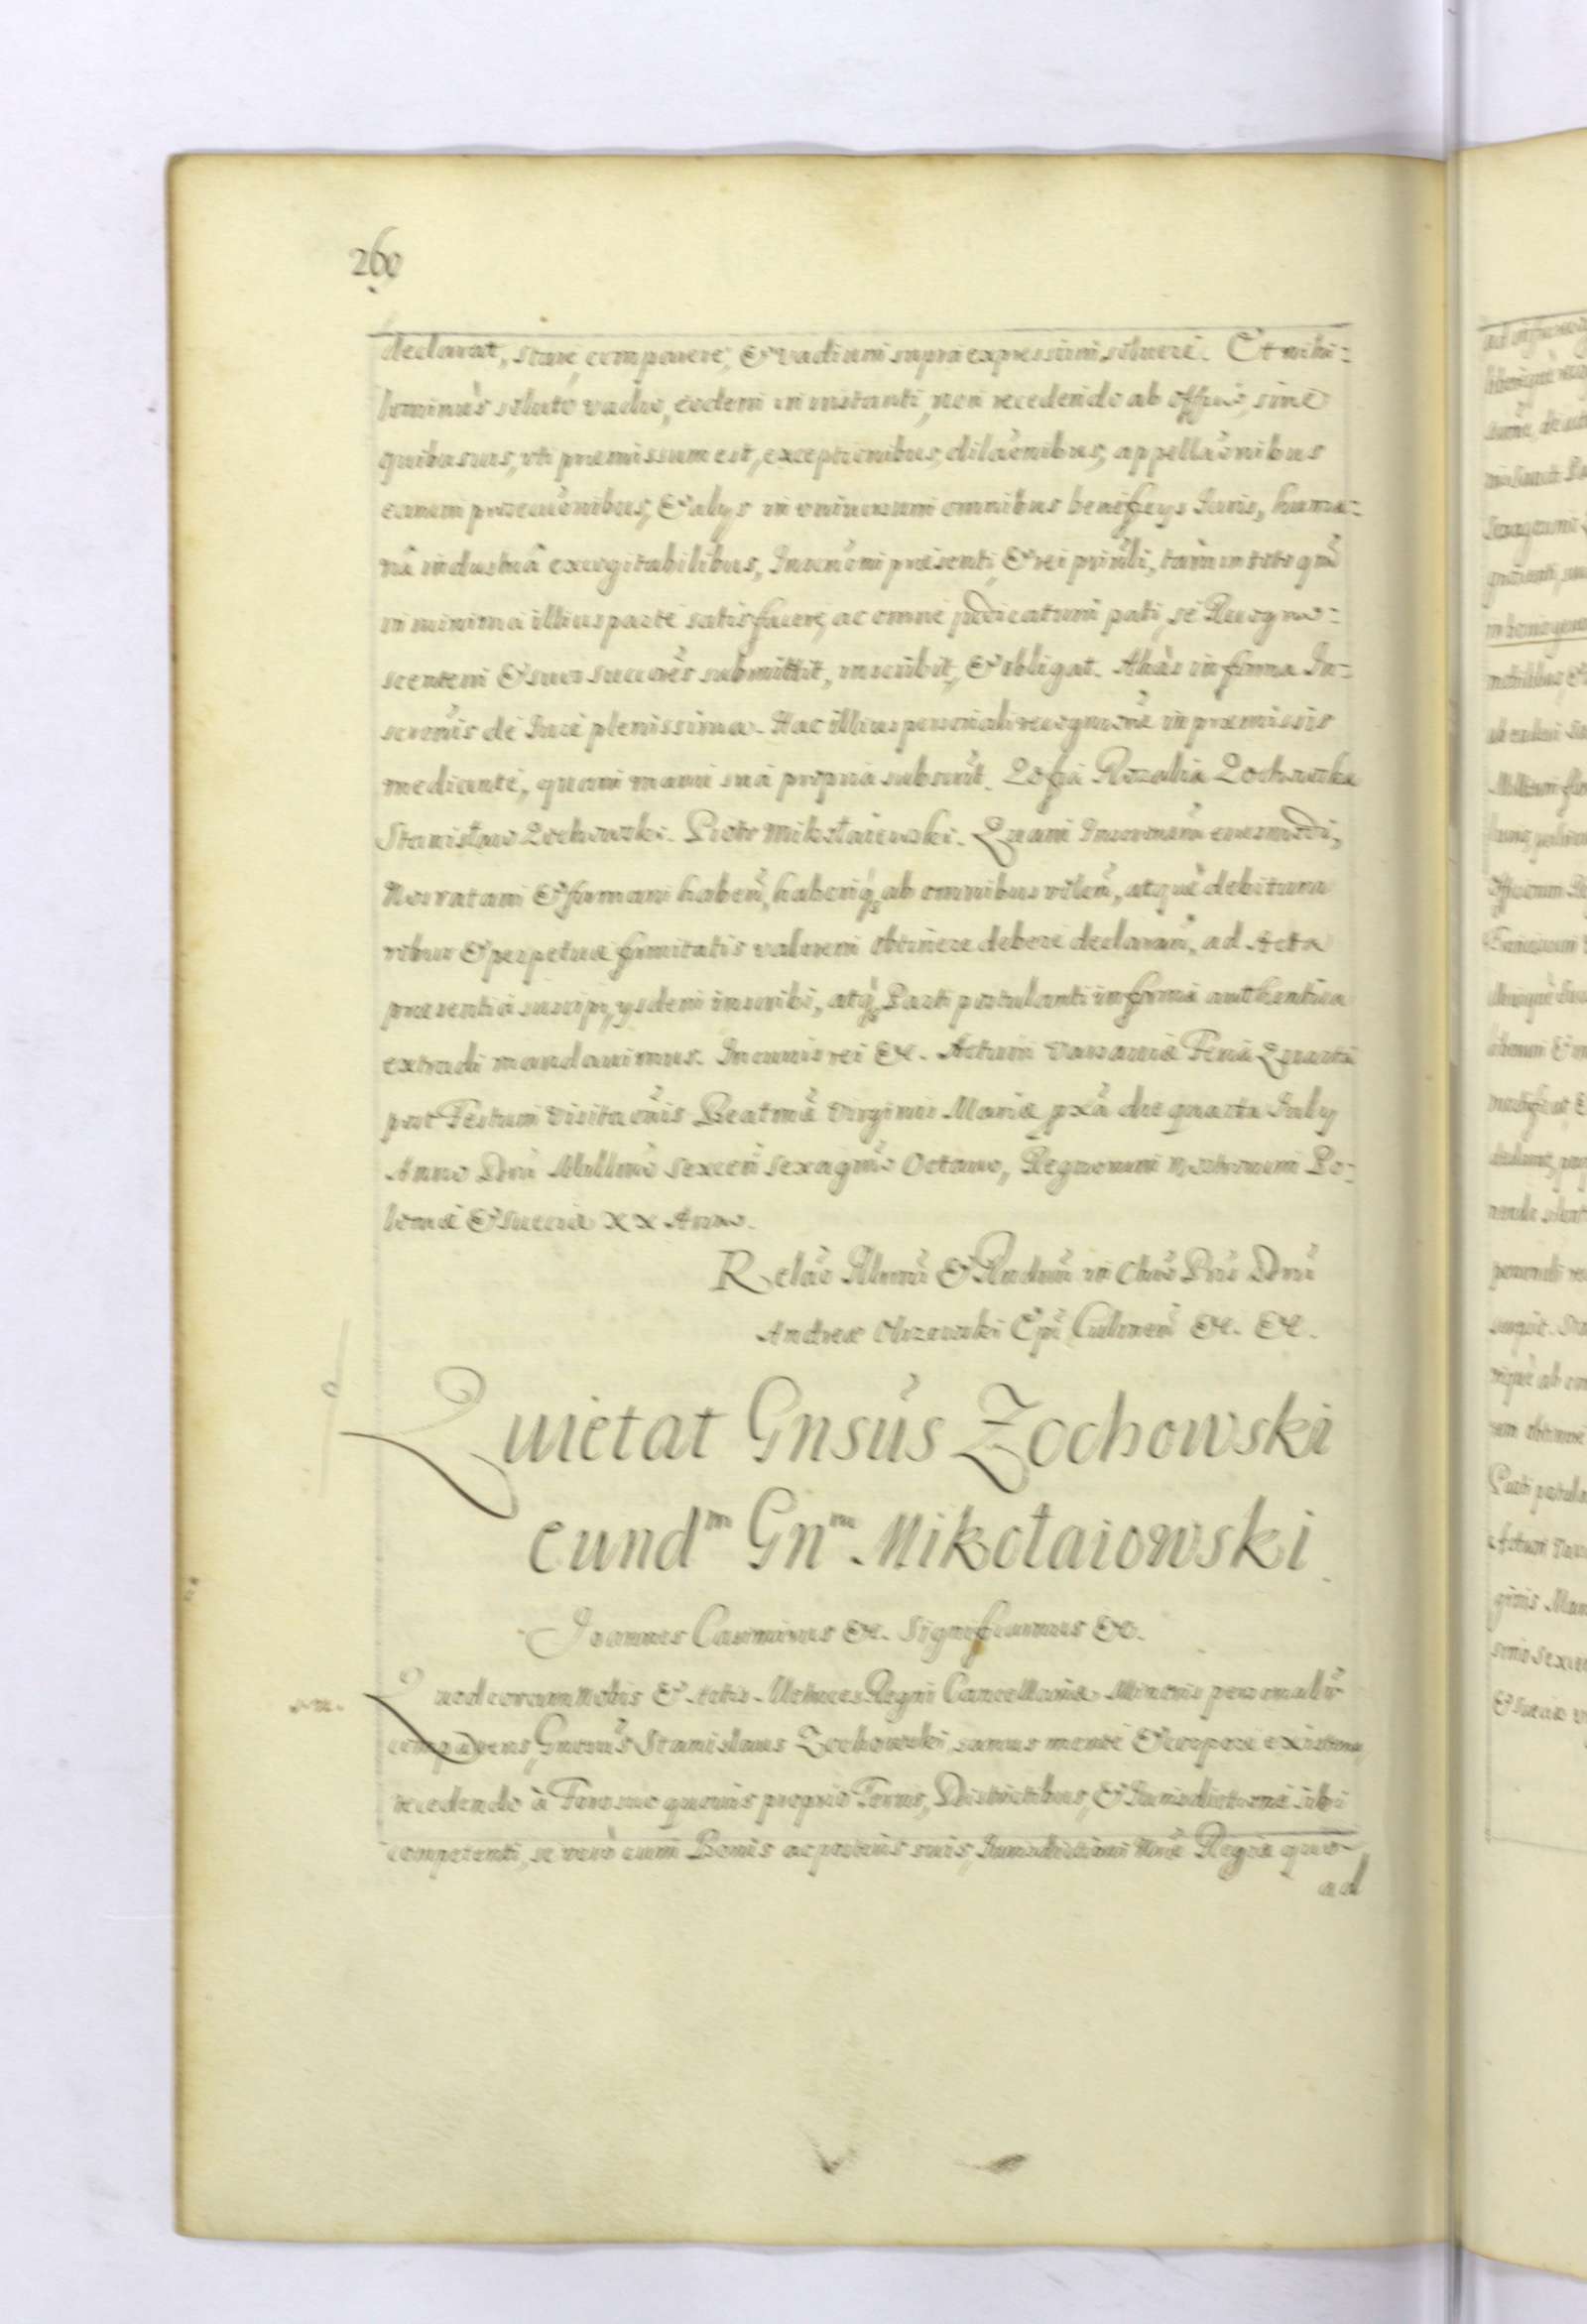 260
declarat, stare, comparere, & vadium supra expressum soluere. Et nihi=
lominùs soluto vadio, eodem in instanti, non recedendo ab offi͠o, sine
quibusuis, vti præmissum est, exceptionibus, dila͠onibus, appella͠onibus
earum prosecu͠onibus, & alys in vniuersum omnibus beneficys Juris, huma=
nâ industriâ excogitabilibus, Inscri͠oni præsenti, & rei pri͠nli, tàm in toto q͠m
in minima illius parte satisfacere, ac omne judicatum pati, se Recogno=
scentem & suos succo͠res submittit, inscribit, & obligat. Aliàs in forma In=
scri͠onis de Jure plenissima. Hac illius personali recogni͠one in præmissis
mediante, quam manu sua propria subscri͠t. Zofia Rozalia Zochowska
Stanisław Zochowski. Piotr Mikołaiewski. Quam Inscri͠onem eiusmodi,
Nos ratam & firmam haben͠, haberiq́ꝫ ab omnibus volen͠, atquè debitum
robur & perpetuæ firmitatis valorem obtinere debere declaran͠, ad Acta
præsentia suscipi, ysdem inscribi, atq́ꝫ Parti postulanti in forma authentica
extradi mandauimus. In cuius rei &c. Actum Varsauiæ Feria Quarta
post Festum Visita͠onis Beat͠mæ Virginis Mariæ px͠a die quarta July
Anno D͠ni Mill͠mo sexcen͠ sexag͠mo Octauo, Regnorum nostrorum Po=
loniæ & Sueciæ XX Anno.
Rela͠o Ill͠mi & R͠ndmi in Ch͠ro P͠ris D͠ni
Andreæ Olszowski Ep͠i Culmen͠ &c. &c.
Quietat Gnsu͠s Zochowski
eundᵐ Gnᵐ Mikołaiowski.
Joannes Casimirus &c. Significamus &c.
Quod coram Nobis & Actis Metrices Regni Cancellariæ Minoris personalr͠
comparens, Gnrosu͠s Stanislaus Zochowski, sanus mente & corpore existens,
recedendo à Foro suo quouis proprio Terris, Districtibus, & Jurisdictione sibi
competenti, se verò cum Bonis ac poste͠ris suis, Jurisdictioni N͠ræ Regiæ quo-
ad